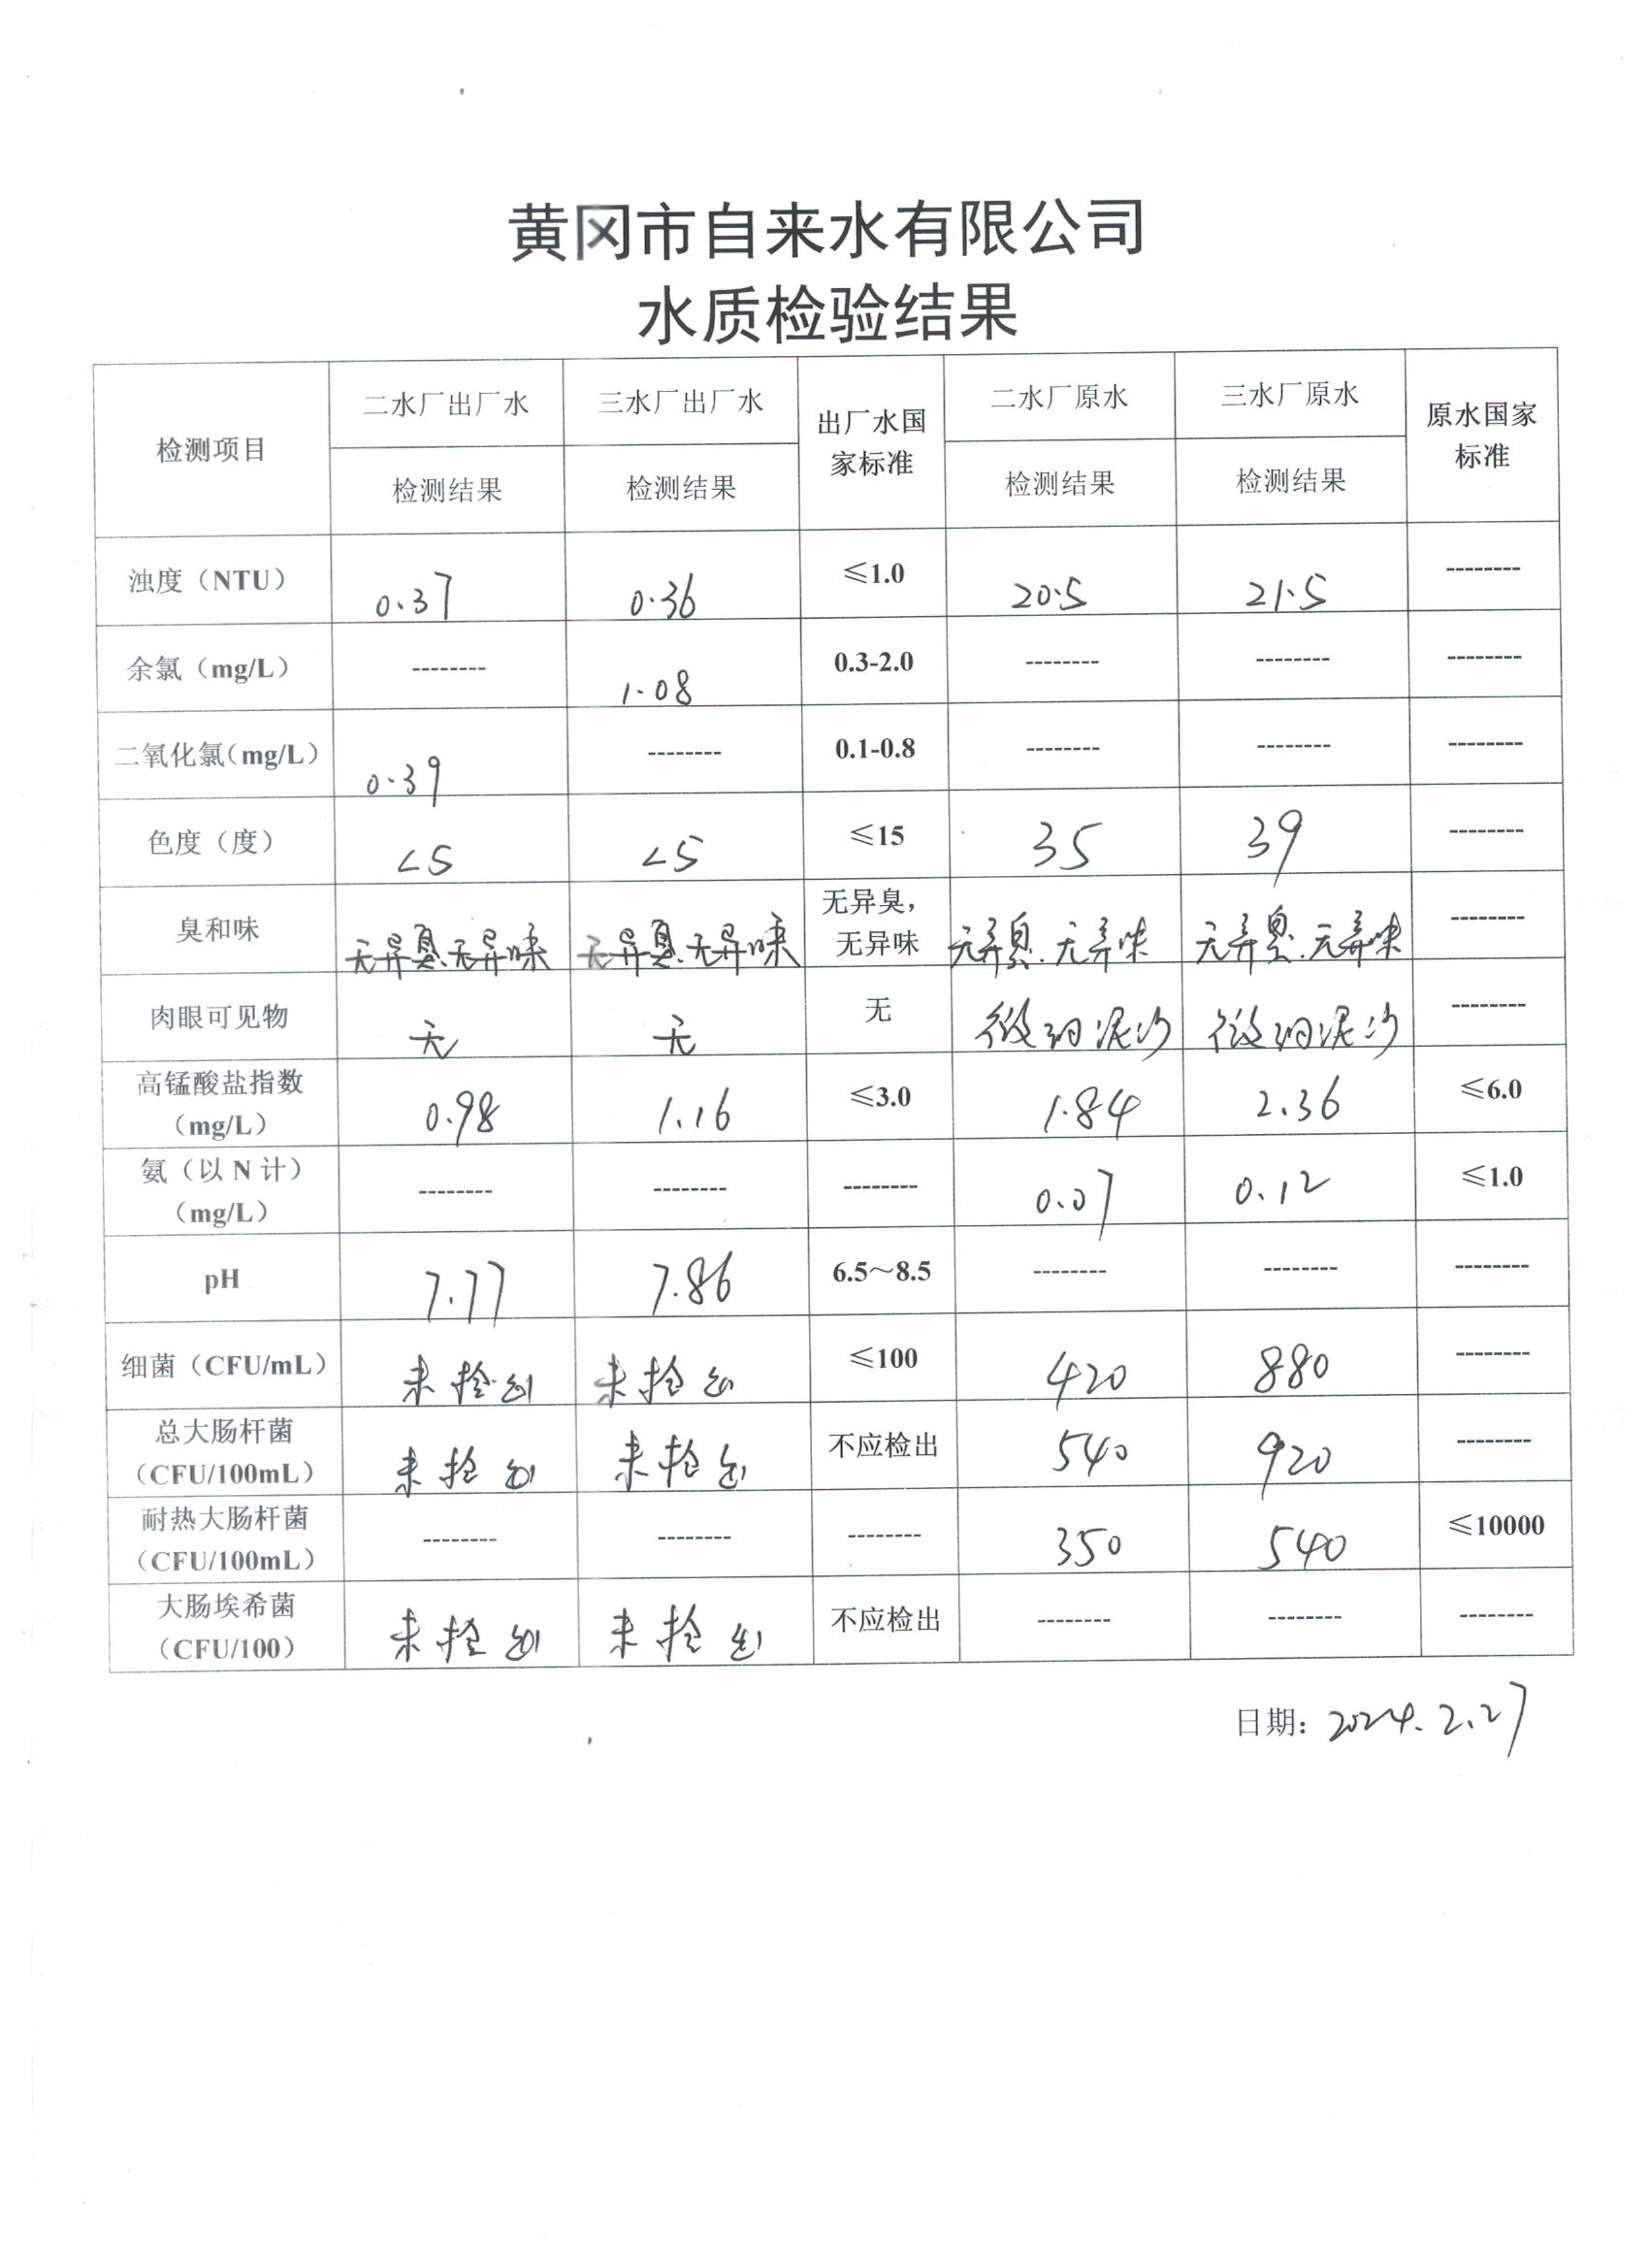 黄冈市自来水有限公司
水质检验结果
检测项目 二水厂出厂水 三水厂出厂水 出厂水国家标准 二水厂原水 三水厂原水 原水国家标准
检测结果 检测结果 检测结果 检测结果
浊度（NTU） 0.37 0.36 ≤1.0 20.5 21.5 --------
余氯（mg/L） -------- 1.08 0.3-2.0 -------- -------- --------
二氧化氯（mg/L） 0.39 -------- 0.1-0.8 -------- -------- --------
色度（度） <5 <5 ≤15 35 39 --------
臭和味 无异臭.无异味 无异臭.无异味 无异臭，无异味 无异臭.无异味 无异臭.无异味 --------
肉眼可见物 无 无 无 微细泥沙 微细泥沙 --------
高锰酸盐指数（mg/L） 0.98 1.16 ≤3.0 1.84 2.36 ≤6.0
氨（以 N 计）（mg/L） -------- -------- -------- 0.07 0.12 ≤1.0
pH 7.77 7.86 6.5～8.5 -------- -------- --------
细菌（CFU/mL） 未检出 未检出 ≤100 420 880 --------
总大肠杆菌（CFU/100mL） 未检出 未检出 不应检出 540 920 --------
耐热大肠杆菌（CFU/100mL） -------- -------- -------- 350 540 ≤10000
大肠埃希菌（CFU/100） 未检出 未检出 不应检出 -------- -------- --------
日期：2024.2.27